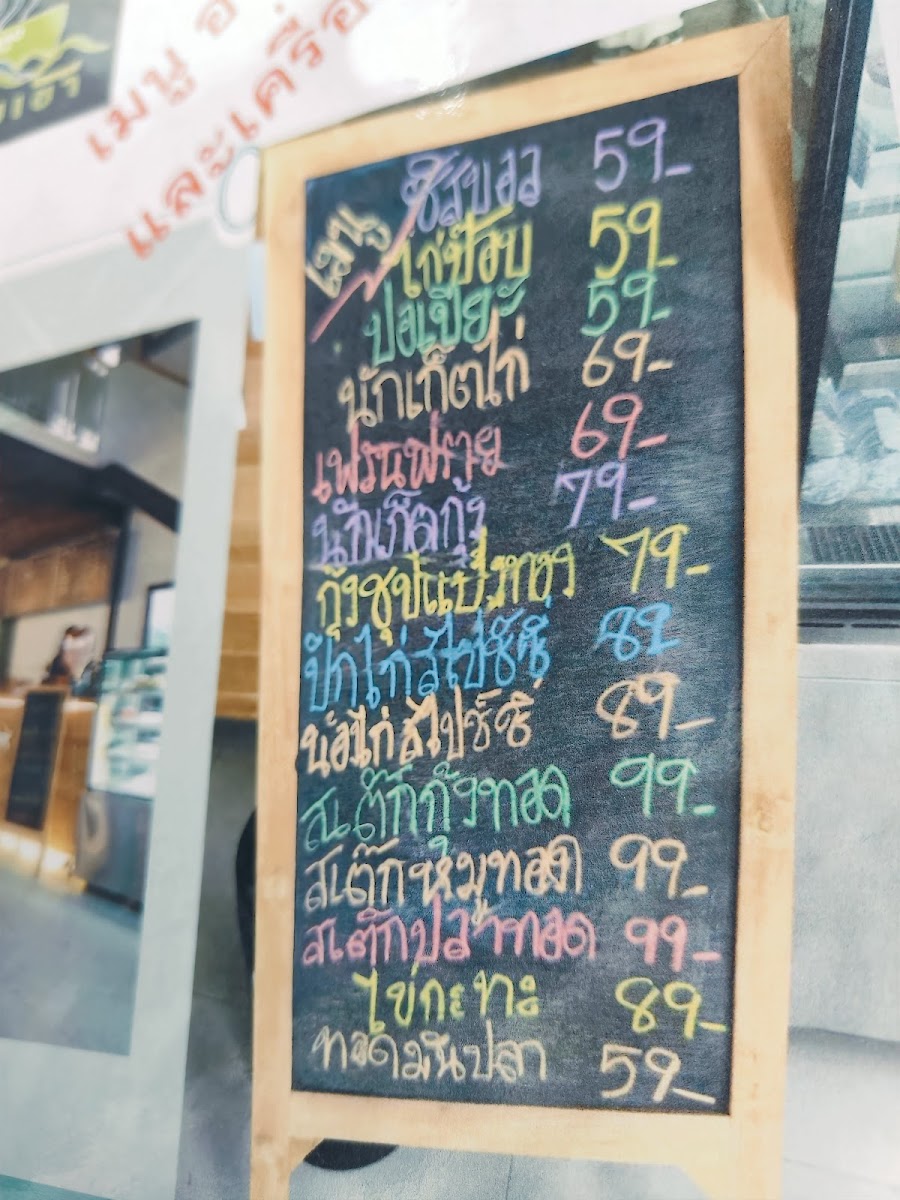 เมนู อ
และเครื่อ
เมนู
ชีสบอล 59-
ไก่ป๊อบ 59-
ปอเปี๊ยะ 59-
นักเก็ตไก่ 69-
เฟรนฟราย 69-
นักเก็ตกุ้ง 79-
กุ้งชุปแป้งทอง 79-
ปีกไก่สไปซ์ซี่ 89
น่องไก่สไปซ์ซี่ 89-
สเต๊กกุ้งทอด 99-
สเต๊กหมูทอด 99-
สเต๊กปลาทอด 99-
ไข่กะทะ 89-
ทอดมันปลา 59-